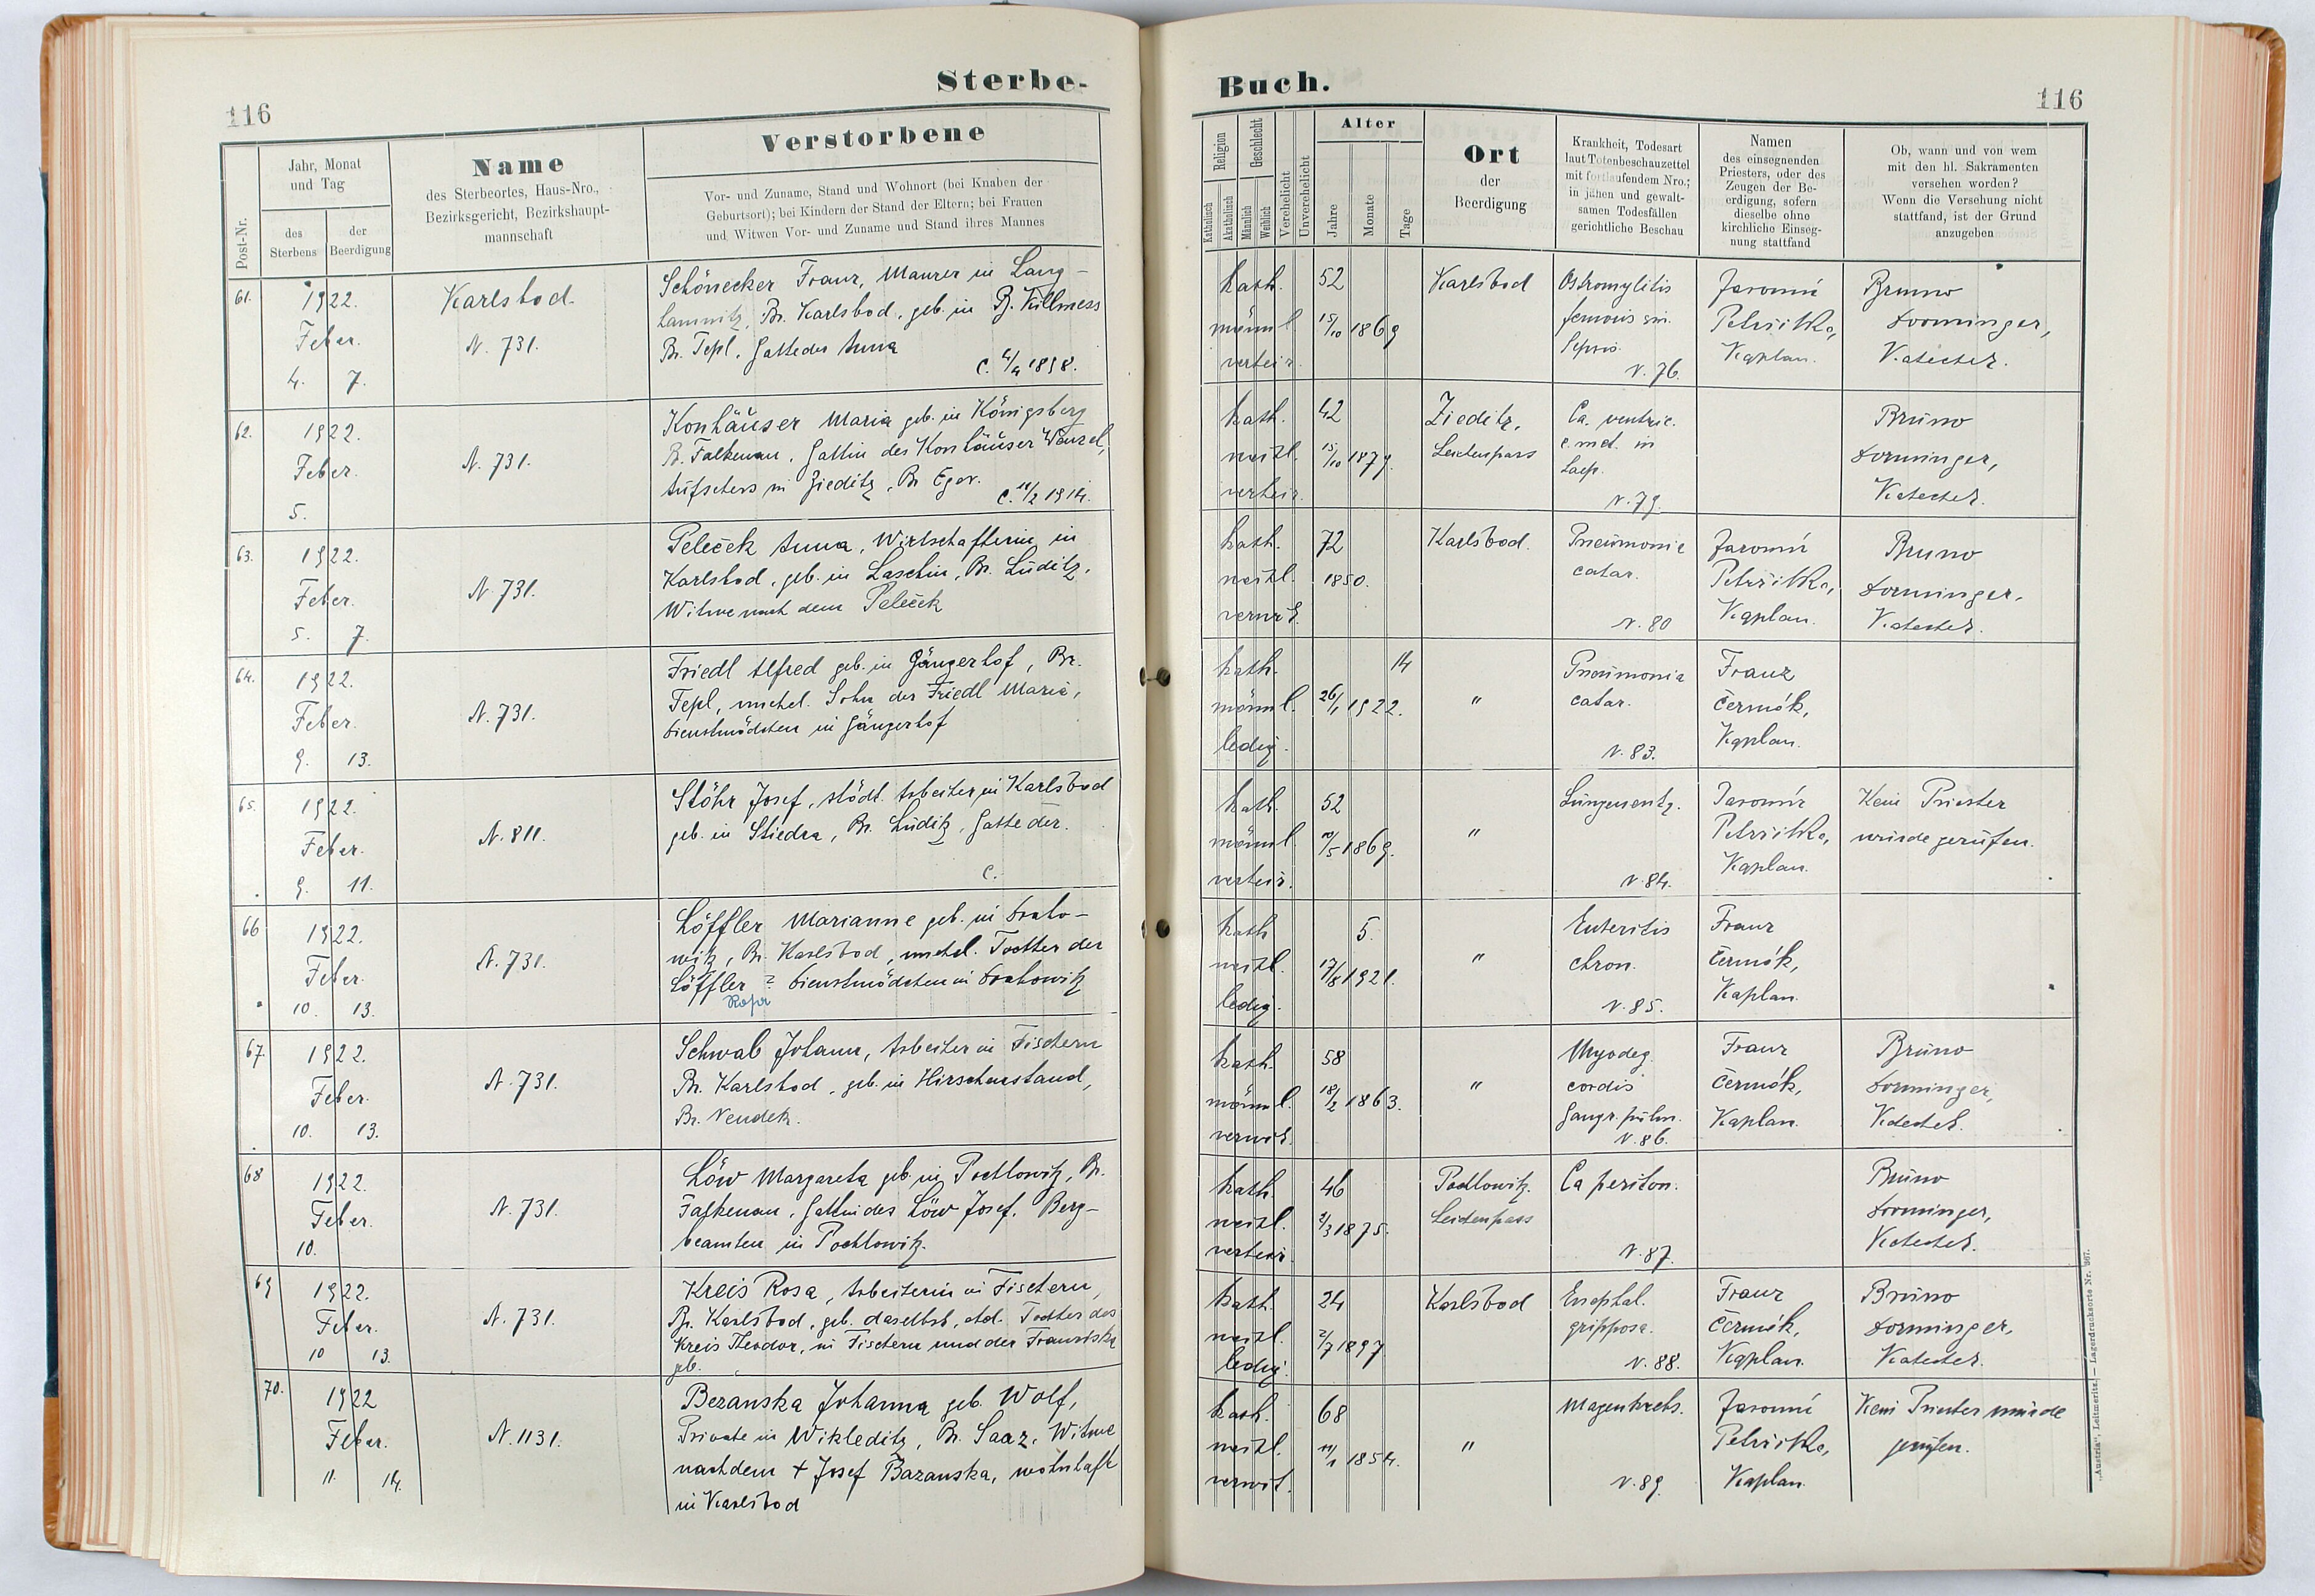 Sterbe-
Buch.
116
116
Post-Nr.
Jahr, Monat
und Tag
des
Sterbens
der
Beerdigung
Name
des Sterbeortes, Haus-Nro.,
Bezirksgericht, Bezirkshaupt-
mannschaft
Verstorbene
Vor- und Zuname, Stand und Wohnort (bei Knaben der
Geburtsort); bei Kindern der Stand der Eltern; bei Frauen
und Witwen Vor- und Zuname und Stand ihres Mannes
Katholisch
Akatholisch
Religion
Männlich
Weiblich
Geschlecht
Verehelicht
Unverehelicht
Alter
Jahre
Monate
Tage
Ort
der
Beerdigung
Krankheit, Todesart
laut Totenbeschauzettel
mit fortlaufendem Nro.;
in jähen und gewalt-
samen Todesfällen
gerichtliche Beschau
Namen
des einsegnenden
Priesters, oder des
Zeugen der Be-
erdigung, sofern
dieselbe ohne
kirchliche Einseg-
nung stattfand
Ob, wann und von wem
mit den hl. Sakramenten
versehen worden?
Wenn die Versehung nicht
stattfand, ist der Grund
anzugeben
61.
1922.
Feber.
4. 7.
Karlsbad.
N. 731.
Schönecker Franz, Maurer in Lang-
Lamnitz, Bz. Karlsbad, geb. in
Bz. Tepl, Gatte der Anna
kath.
männl.
verheir.
52
15/10 1869
Karlsbad
femoris sin.
Sepsis.
N. 76.
Jaromír
Petržilka,
Kaplan.
Bruno
Dorminger,
Katechet.
62.
1922.
Feber.
5.
N. 731.
Konhäuser Maria geb. in Königsberg
Bz. Falkenau, Gattin des Konhäuser Wenzel,
Aufsehers in Zieditz, Bz. Eger.
C. 11/2 1914.
kath.
weibl.
verheir.
42
15/10 1879.
Zieditz,
Leichenpass
Ca. ventric.
c. met. in
N. 79.
Bruno
Dorminger,
Katechet.
63.
1922.
Feber.
5. 7.
N. 731.
Peleček Anna, Wirtschafterin in
Karlsbad, geb. in Laschin, Bz. Luditz,
Witwe nach dem Peleček
kath.
weibl.
verwit.
72
1850.
Karlsbad.
Pneumonie
catar.
N. 80
Jaromír
Petržilka,
Kaplan.
Bruno
Dorminger,
Katechet.
64.
1922.
Feber.
9. 13.
N. 731.
Friedl Alfred geb. in Gängerhof, Bz.
Tepl, unehel. Sohn der Friedl Maria,
Dienstmädchen in Gängerhof
kath.
männl.
ledig.
14
26/1 1922.
"
Pneumonia
catar.
N. 83.
Franz
Čermák,
Kaplan.
65.
1922.
Feber.
9. 11.
N. 811.
Stöhr Josef, städt. Arbeiter in Karlsbad
geb. in Stiedra, Bz. Luditz, Gatte der.
C.
kath.
männl.
verheir.
52
1869.
"
Lungenentz.
N. 84.
Jaromír
Petržilka,
Kaplan.
Kein Priester
wurde gerufen.
66
1922.
Feber.
10. 13.
N. 731.
Löffler Marianne geb. in Draho-
witz, Bz. Karlsbad, unehel. Tochter der
Löffler ? Dienstmädchen in Drahowitz
Rosa
kath
weibl.
ledig.
5.
17/8 1921.
"
Enteritis
chron.
N. 85.
Franz
Čermák,
Kaplan.
67.
1922.
Feber.
10. 13.
N. 731.
Schwab Johann, Arbeiter in Fischern
Bz. Karlsbad, geb. in Hirschenstand,
Bz. Neudek.
kath.
männl.
verwit.
58
18/2 1863.
"
Myodeg.
cordis
Gangr. pulm.
N. 86.
Franz
Čermák,
Kaplan.
Bruno
Dorminger,
Katechet.
68
1922.
Feber.
10.
N. 731.
Löw Margareta geb. in Pochlowitz, Bz.
Falkenau, Gattin des Löw Josef, Berg-
beamten in Pochlowitz.
kath.
weibl.
verheir.
46
2/3 1875.
Pochlowitz.
Leichenpass
Ca periton.
N. 87.
Bruno
Dorminger,
Katechet.
69
1922.
Feber.
10 13.
N. 731.
Kreis Rosa, Arbeiterin in Fischern,
Bz. Karlsbad, geb. daselbst, ehel. Tochter des
Kreis Theodor, in Fischern und der Franziska
geb.
kath.
weibl.
ledig.
24
2/7 1897
Karlsbad
Encephal.
gripposa.
N. 88.
Franz
Čermák,
Kaplan.
Bruno
Dorminger,
Katechet.
70.
1922
Feber.
11. 14.
N. 1131.
Bezanska Johanna geb. Wolf,
Private in Wikleditz, Bz. Saaz. Witwe
nach dem + Josef Bazanska, wohnhaft
in Karlsbad
kath.
weibl.
verwit.
68
11/1 1854.
"
Magenkrebs.
N. 89.
Jaromír
Petržilka,
Kaplan.
Kein Priester wurde
gerufen.
„Austria“, Leitmeritz. — Lagerdrucksorte Nr. 367.